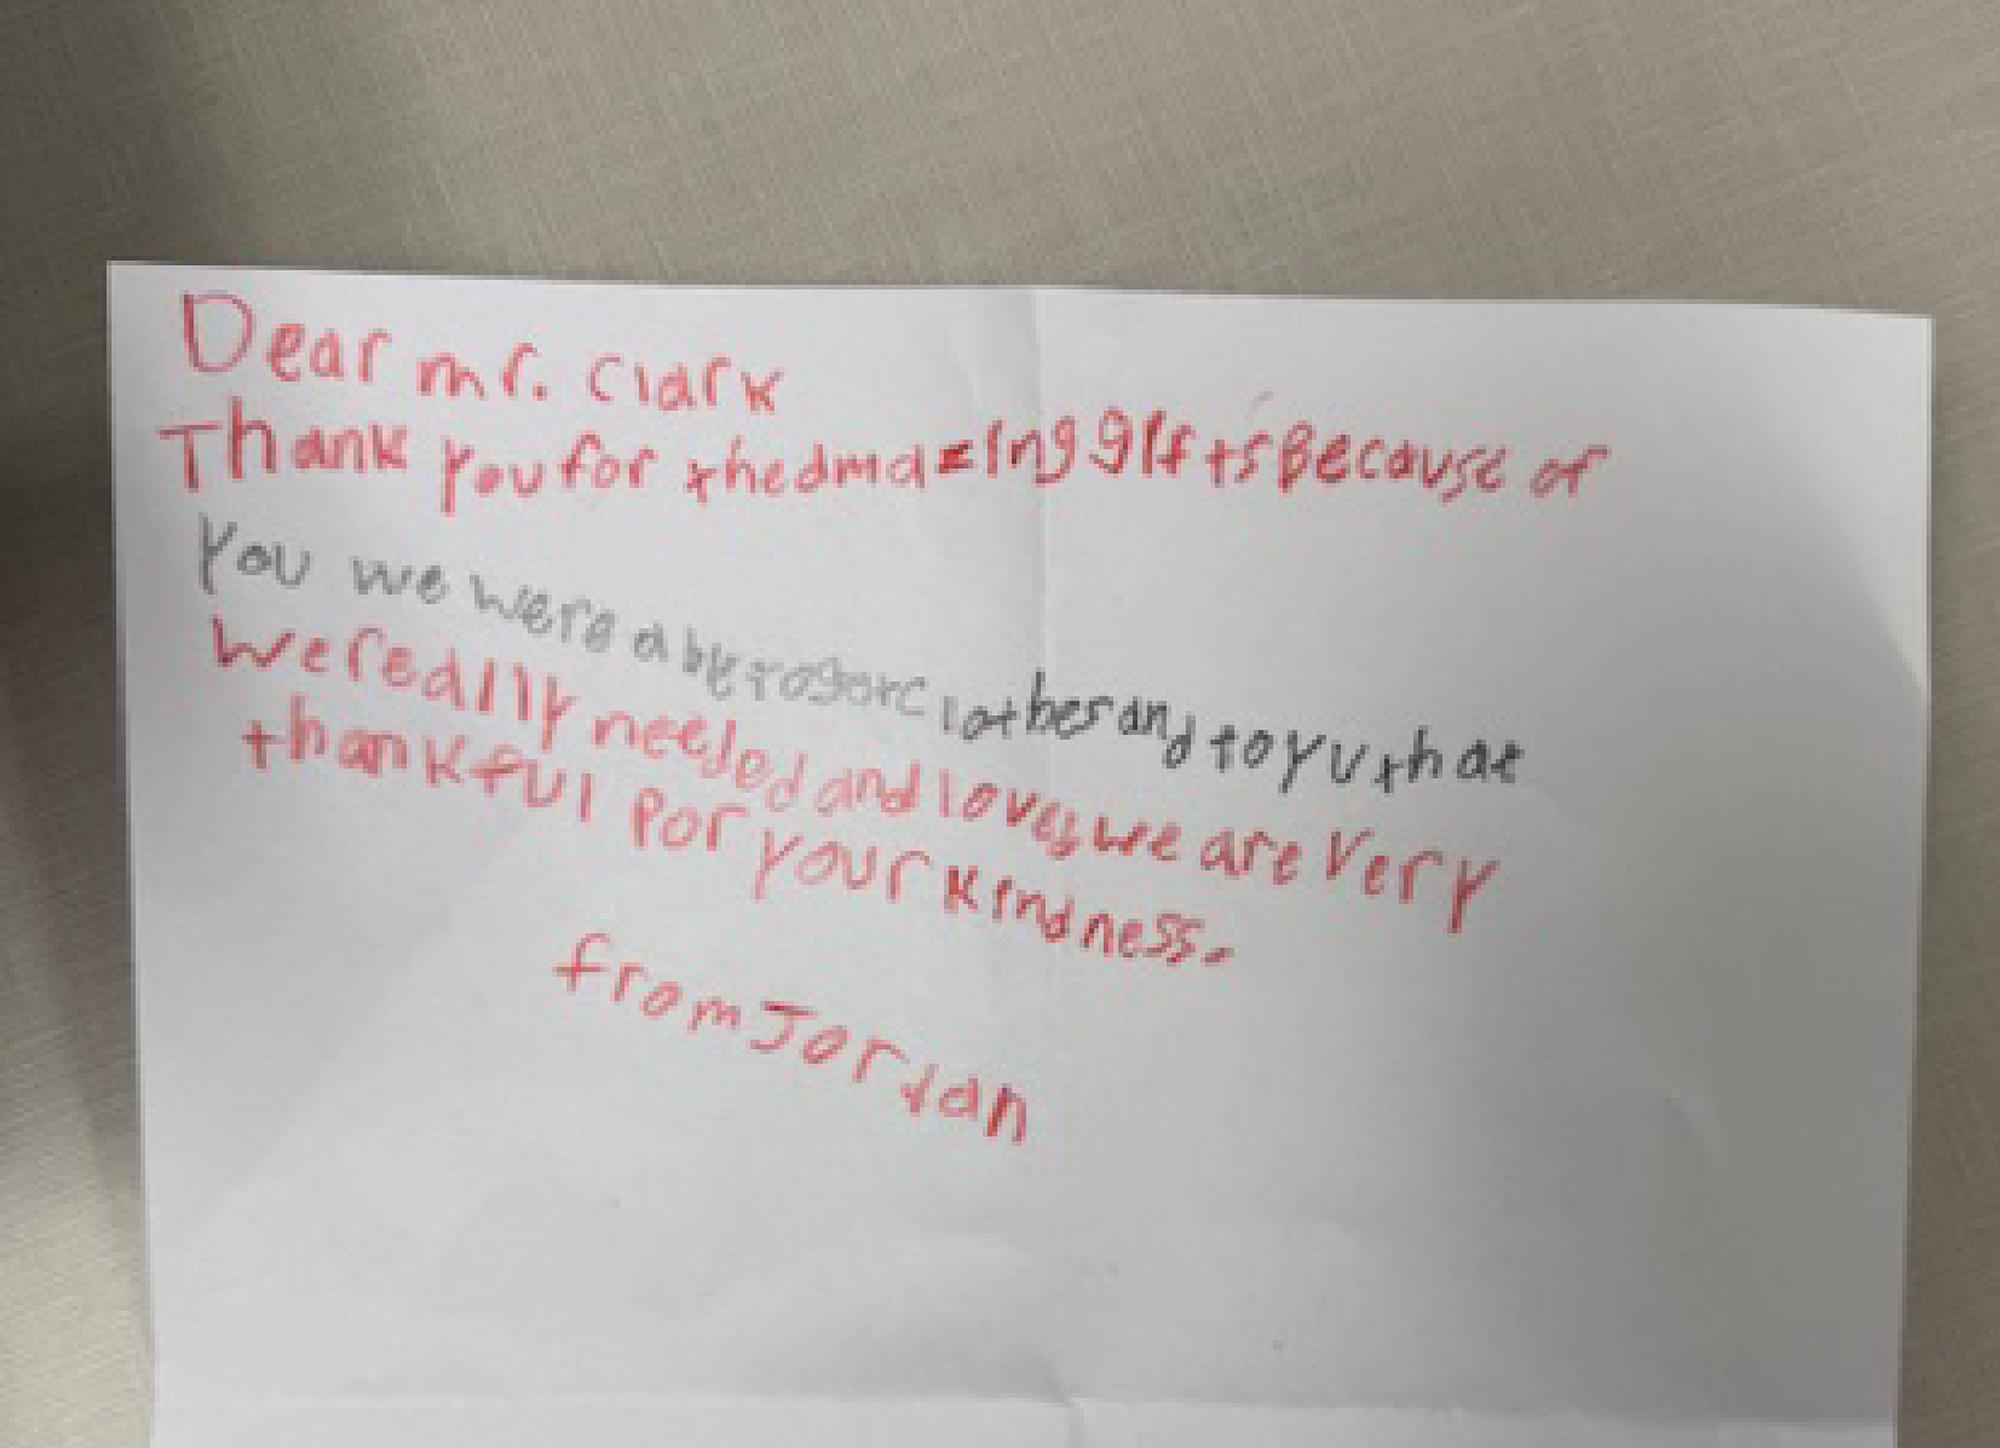 Dear mr. Clark
Thank you for thedmazing gifts Because of
you we were able to get clothes and toyu that
we really needed and loves we are very
thankful for your kindness.
from Jordan